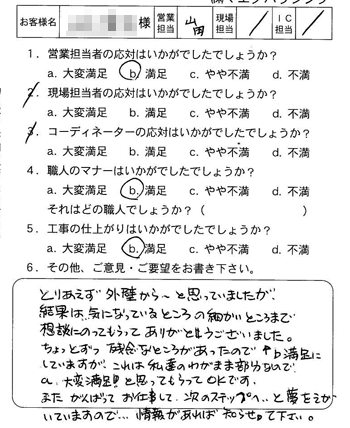 お客様名 様 営業担当 山田 現場担当 / IC担当 /
1．営業担当者の応対はいかがでしたでしょうか？
a. 大変満足 b. 満足 c. やや不満 d. 不満
2．現場担当者の応対はいかがでしたでしょうか？
a. 大変満足 b. 満足 c. やや不満 d. 不満
3．コーディネーターの応対はいかがでしたでしょうか？
a. 大変満足 b. 満足 c. やや不満 d. 不満
4．職人のマナーはいかがでしたでしょうか？
a. 大変満足 b. 満足 c. やや不満 d. 不満
それはどの職人でしょうか？（ ）
5．工事の仕上がりはいかがでしたでしょうか？
a. 大変満足 b. 満足 c. やや不満 d. 不満
6．その他、ご意見・ご要望をお書き下さい。
とりあえず 外壁から〜と思っていましたが、
結果は、気になっているところの細かいところまで
相談にのってもらって ありがとうございました。
ちょっとずつ 残念なところがあったので b満足に
していますが、これは私達のわがまま部分なので、
a. 大変満足!! と思ってもらってOKです。
また がんばって お仕事して、次のステップへ、と夢をえがいていますので… 情報があれば 知らせて下さい。